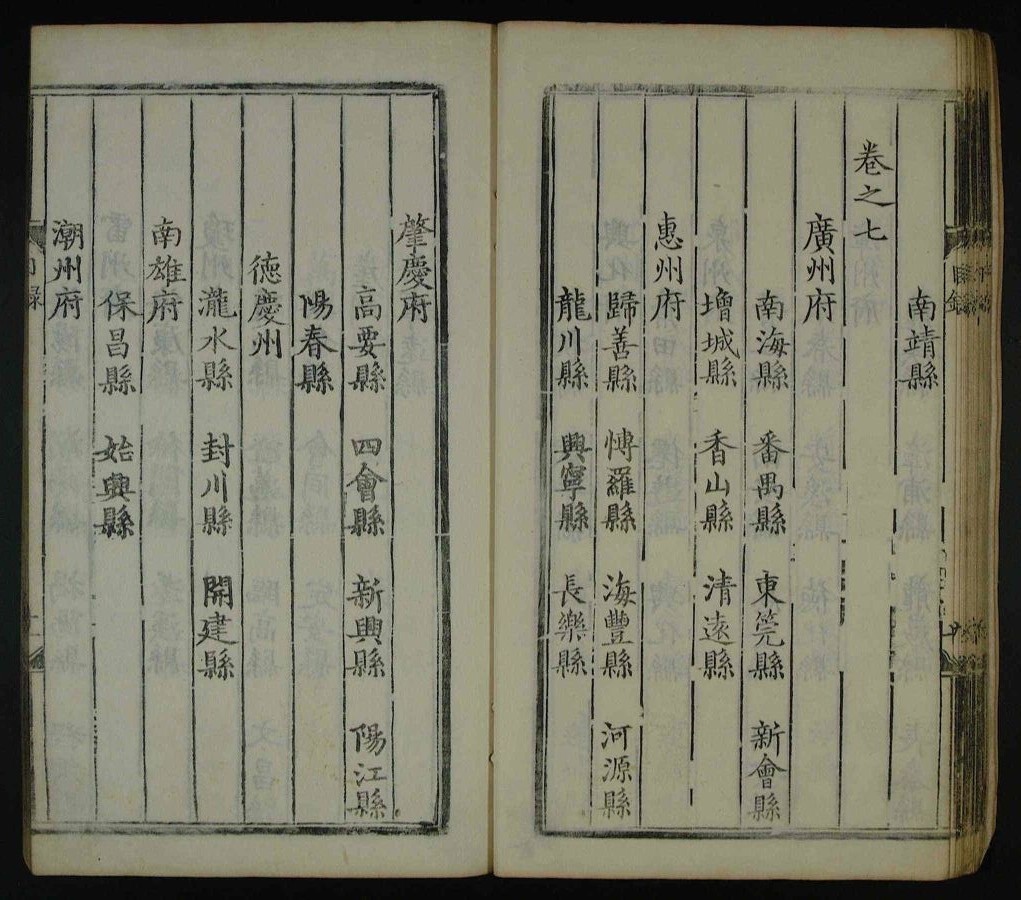 南靖縣
卷之七
廣州府
南海縣 番禺縣 東筦縣 新會縣
增城縣 香山縣 清遠縣
惠州府
歸善縣 愽羅縣 海豐縣 河源縣
龍川縣 興寧縣 長樂縣
肇慶府
高要縣 四會縣 新興縣 陽江縣
陽春縣
德慶州
瀧水縣 封川縣 開建縣
南雄府
保昌縣 始興縣
潮州府
目錄